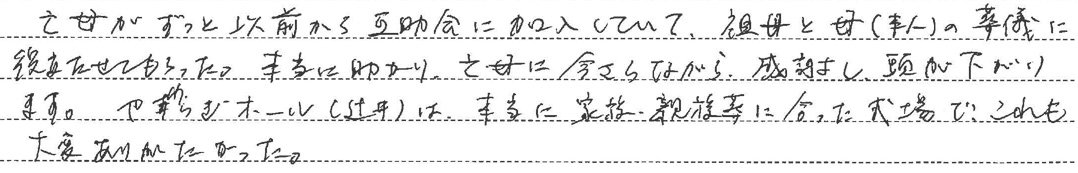 亡母がずっと以前から互助会に加入していて、祖母と母(本人)の葬儀に
役立たせてもらった。本当に助かり、亡母に今さらながら、感謝し、頭が下がり
ます。やすらぎホール(辻井)は、本当に家族・親族葬に合った式場で、これも
大変ありがたかった。